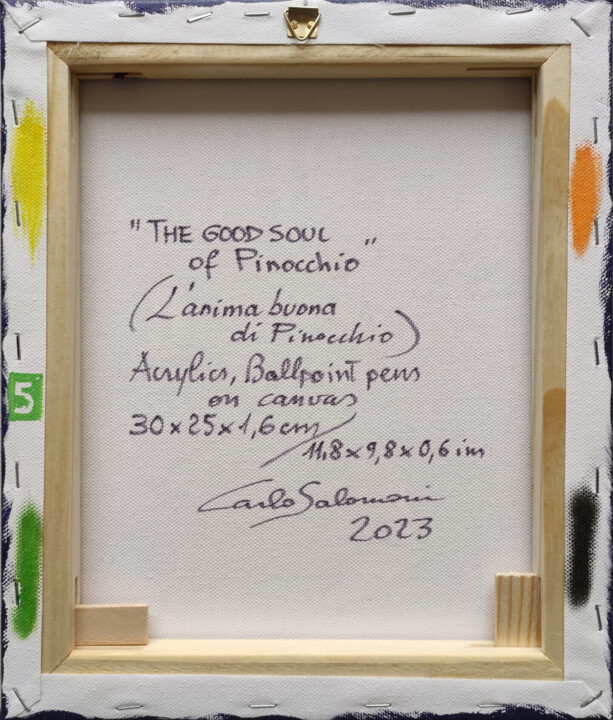 "THE GOOD SOUL
of Pinocchio"
(L'anima buona
di Pinocchio)
Acrylics, Ballpoint pens
on canvas
30x25x1,6cm/
11,8x9,8x0,6 in
5
Carlo Salomoni
2023